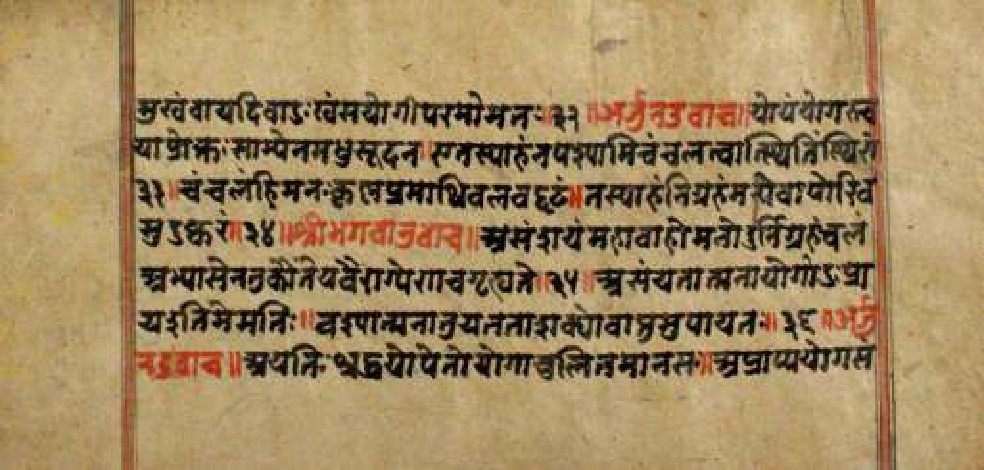 सुखंवायदिवाऽःखंसयोगीपरमोमतः ३२ ॥अर्जुनउवाच॥योयंयोगस्त्व
याप्रोक्तःसाम्येनमधुसूदन॥एतस्याहंनपश्यामिचंचलत्वात्स्थितिंस्थिरां
३३॥चंचलंहिमनःकृष्णप्रमाथिबलवद्दृढं॥तस्याहंनिग्रहंमन्येवायोरिव
सुऽष्करं॥३४॥॥श्रीभगवानुवाच॥असंशयंमहाबाहोमनोऽर्निग्रहंचलं
अभ्यासेनतुकौंतेयवैराग्येणचगृह्यते॥३५॥असंयतात्मनायोगोऽःप्रा
पइतिमेमतिः॥वश्यात्मनातुयततााशक्योवाप्तुमुपायतः॥३६॥अर्जु
नउवाच॥अयतिःश्रद्धयोपेतोयोगाच्चलितमानसः॥अप्राप्ययोगसं